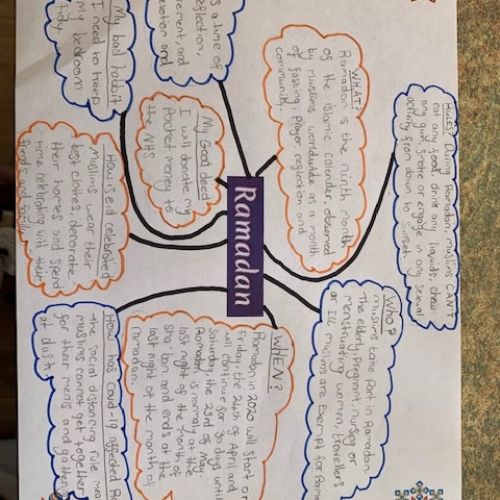 Ramadan
WHAT?
Ramadan is the ninth month
of the islamic calender, observed
by muslims worldwide as a month
of fasting, prayer, reflection and
community.
RULES? During Ramadan, muslims CAN'T
eat any food, drink any liquids, chew
any gum, smoke or engage in any sexual
activity from dawn to sunset.
Who?
Muslims take part in Ramadan.
The elderly, pregnant, nursing or
menstruating women, travellers
or ill muslims are exempt for
WHEN?
Ramadan in 2020 will start on
Friday, the 24th of April and
will continue for 30 days until
Saturday the 23rd of May.
Ramadan is normally at the
last night of the month of
sha'ban and ends at the
last night of the month of
ramadan.
How has covid-19 affected
the social distancing rule
muslims cannot get together
for their meals and
at dusk.
How is eid celebrated
Muslims wear their
best clothes, decorate
their homes and spend
time celebrating with their
friends and family.
My Good deed
I will donate my
Pocket money to
the NHS
My bad habit
I need to keep
my bedroom
tidy.
is a time of
reflection,
and
and